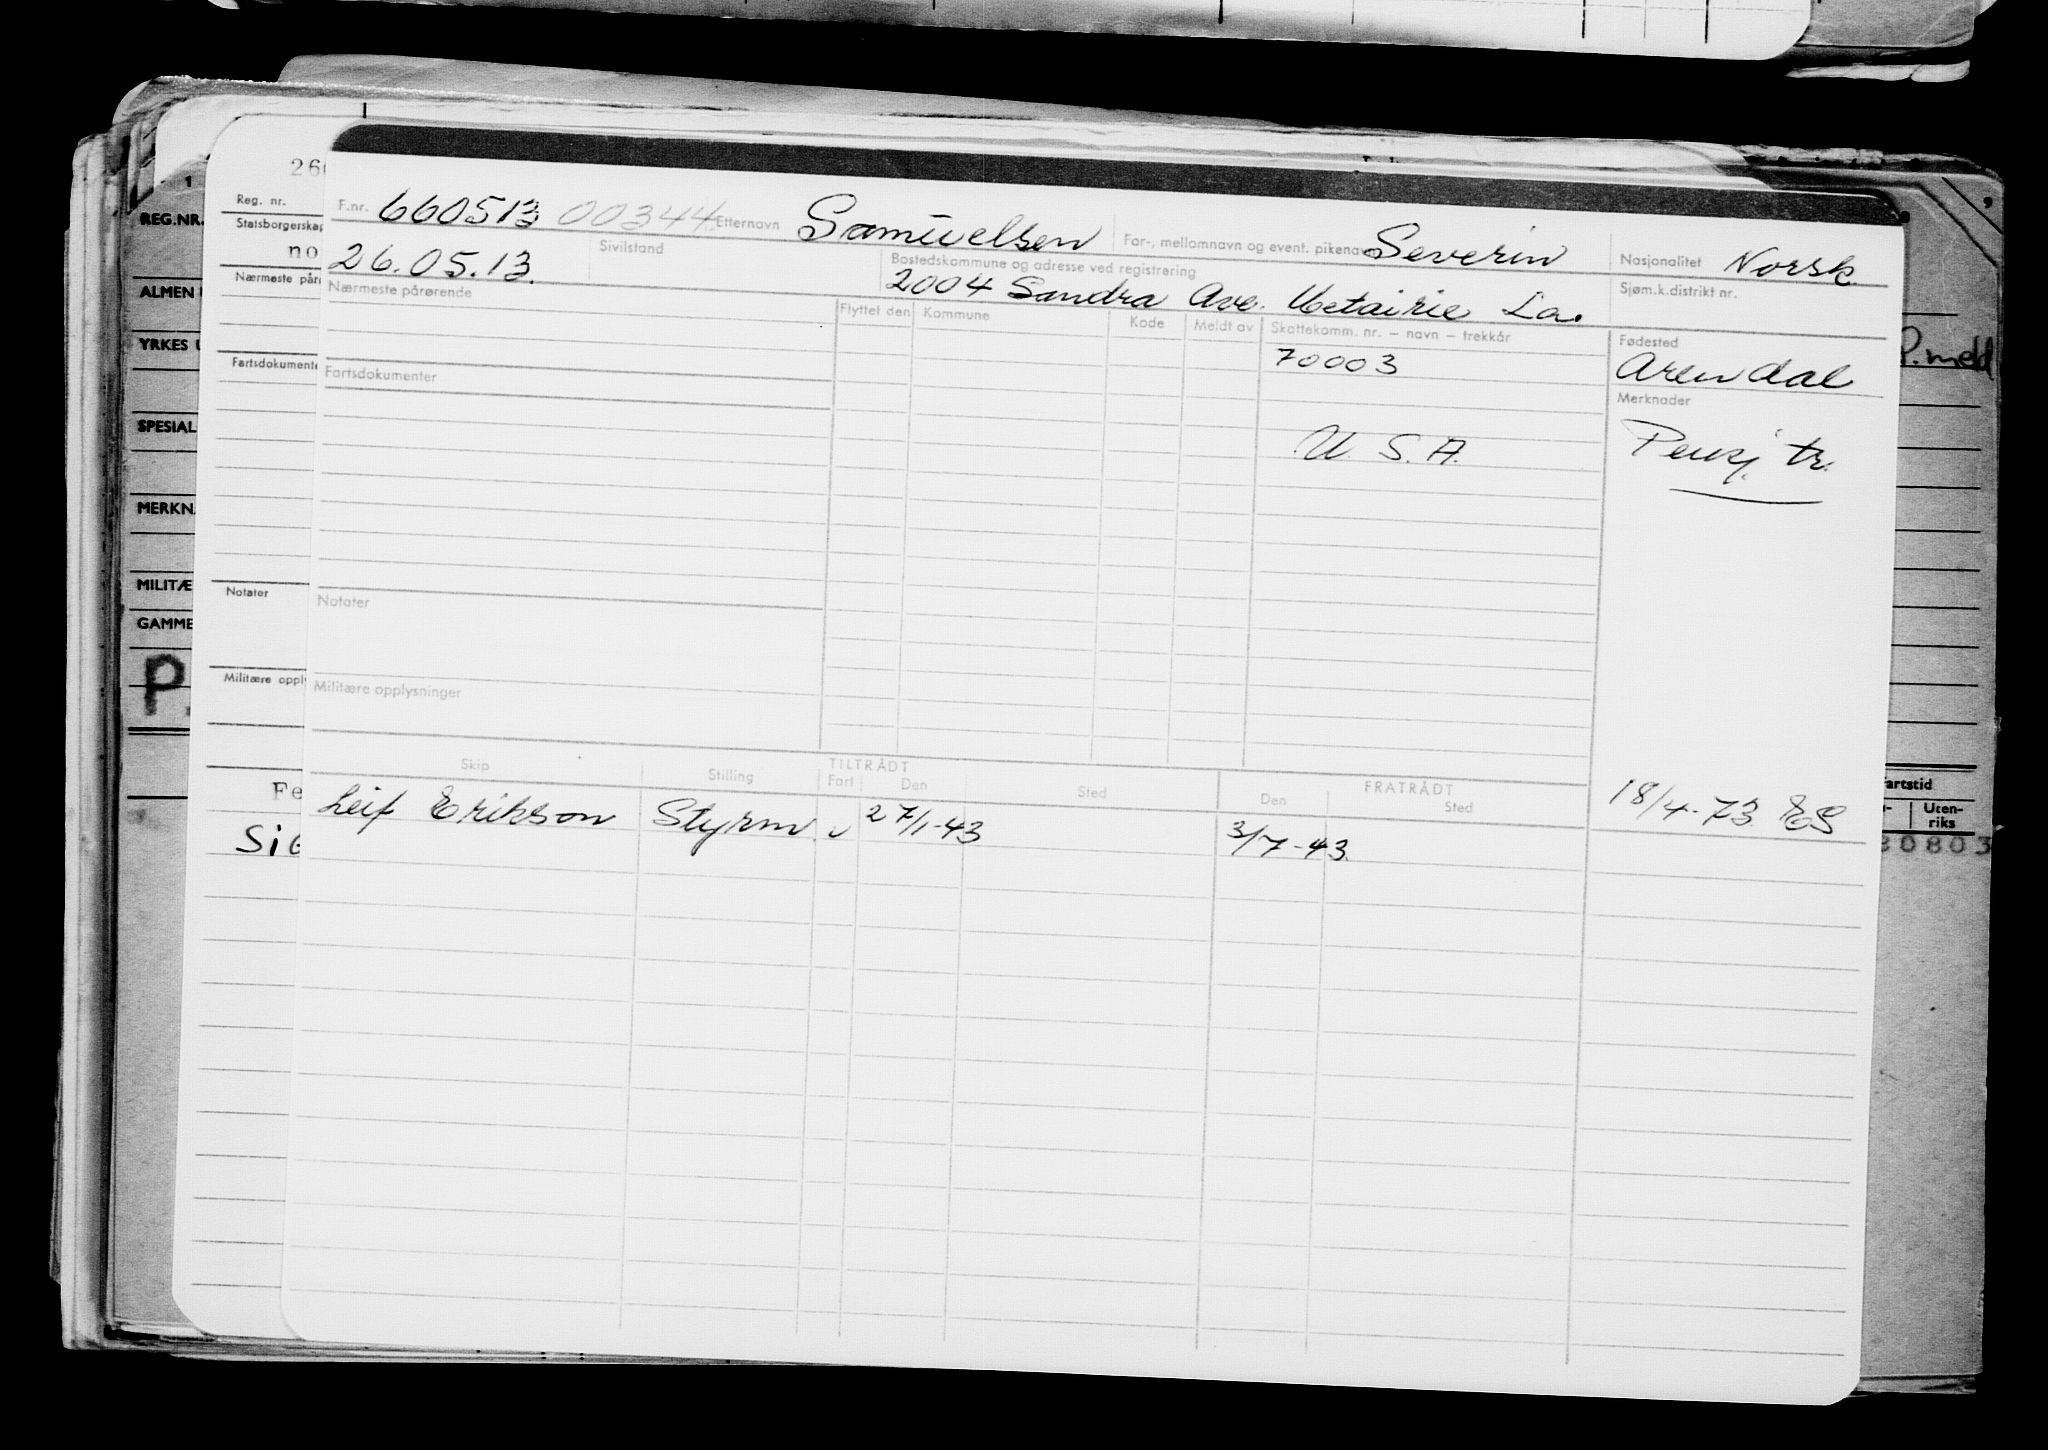 260
Reg. nr.
F.nr. 660513 00344 Etternavn Samuelsen For-, mellomnavn og event. pikenavn Severin Nasjonalitet Norsk
REG.NR.
Statsborgerskap
no
26.05.13. Sivilstand Bostedskommune og adresse ved registrering Sjøm.k.distrikt nr.
2004 Sandra Ave. Metairie La.
Nærmeste pårørende
Nærmeste pår
ALMEN
Flyttet den Kommune Kode Meldt av Skattekomm. nr. – navn – trekkår Fødested
70003 Arendal
YRKES P.meld
Fartsdokumente Fartsdokumenter Merknader
SPESIAL
U. S. A. Pensj. tr.
MERKNA
MILITÆ
Notater Notater
GAMME
P.
Militære oppl Militære opplysninger
Skip Stilling TILTRÅDT FRATRÅDT
Fart Den Sted Den Sted
Fe Leif Erikson Styrm. v 27/1-43 3/7-43 18/4-73 ES
artstid
Uten-
riks
30803
SiG